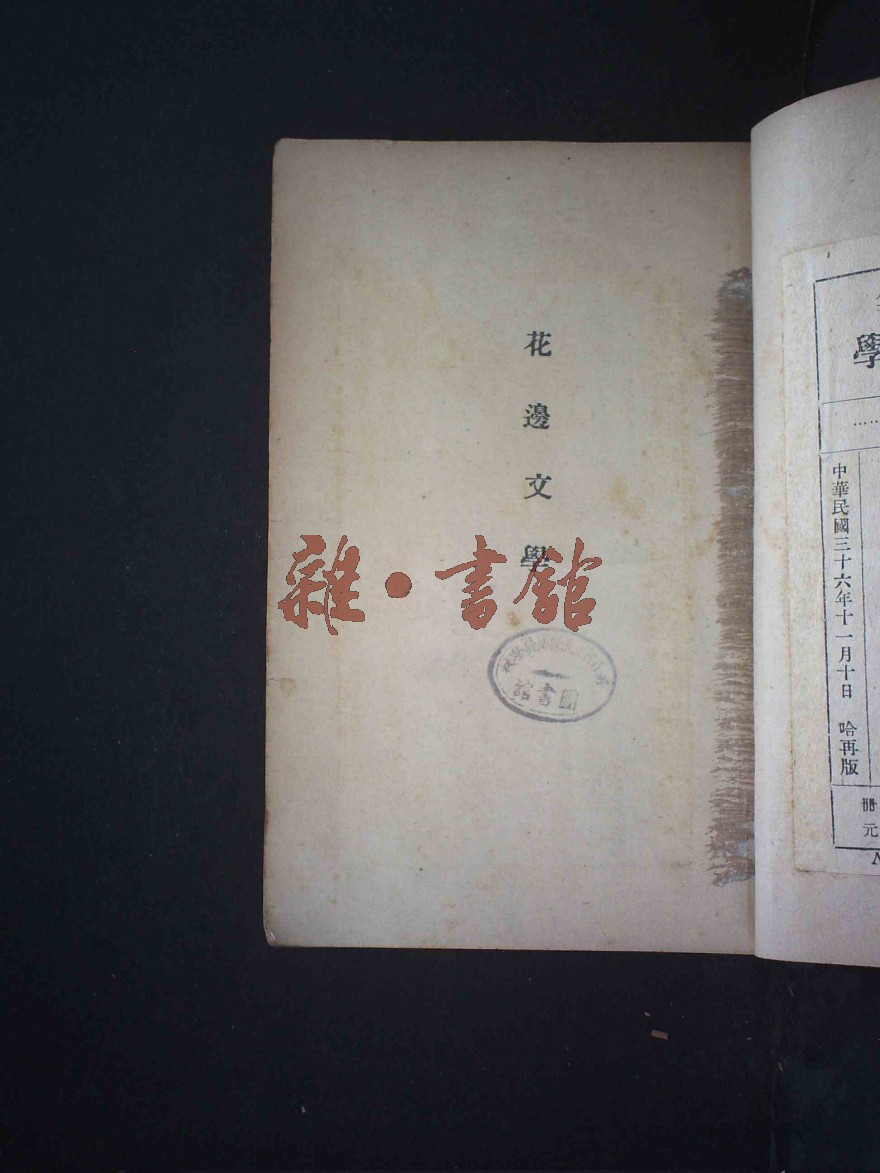 花邊文學
雜·書館
圖書館
學
中華民國三十六年十一月十日 哈再版
冊
元